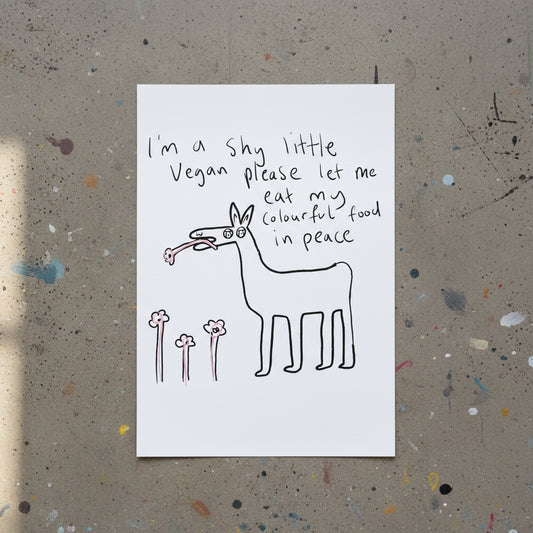 I'm a shy little
Vegan please let me
eat my
colourful food
in peace